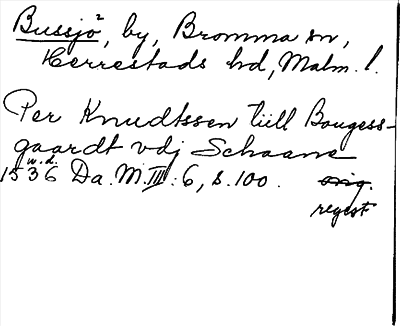 Bussjö², by, Bromma sn,
Herrestads hd, Malm. l.
Per Knudtssen till Bougess-
gaardt vdj Schaane
u.d.
1536 Da. M. III: 6, s. 100. orig.
regest